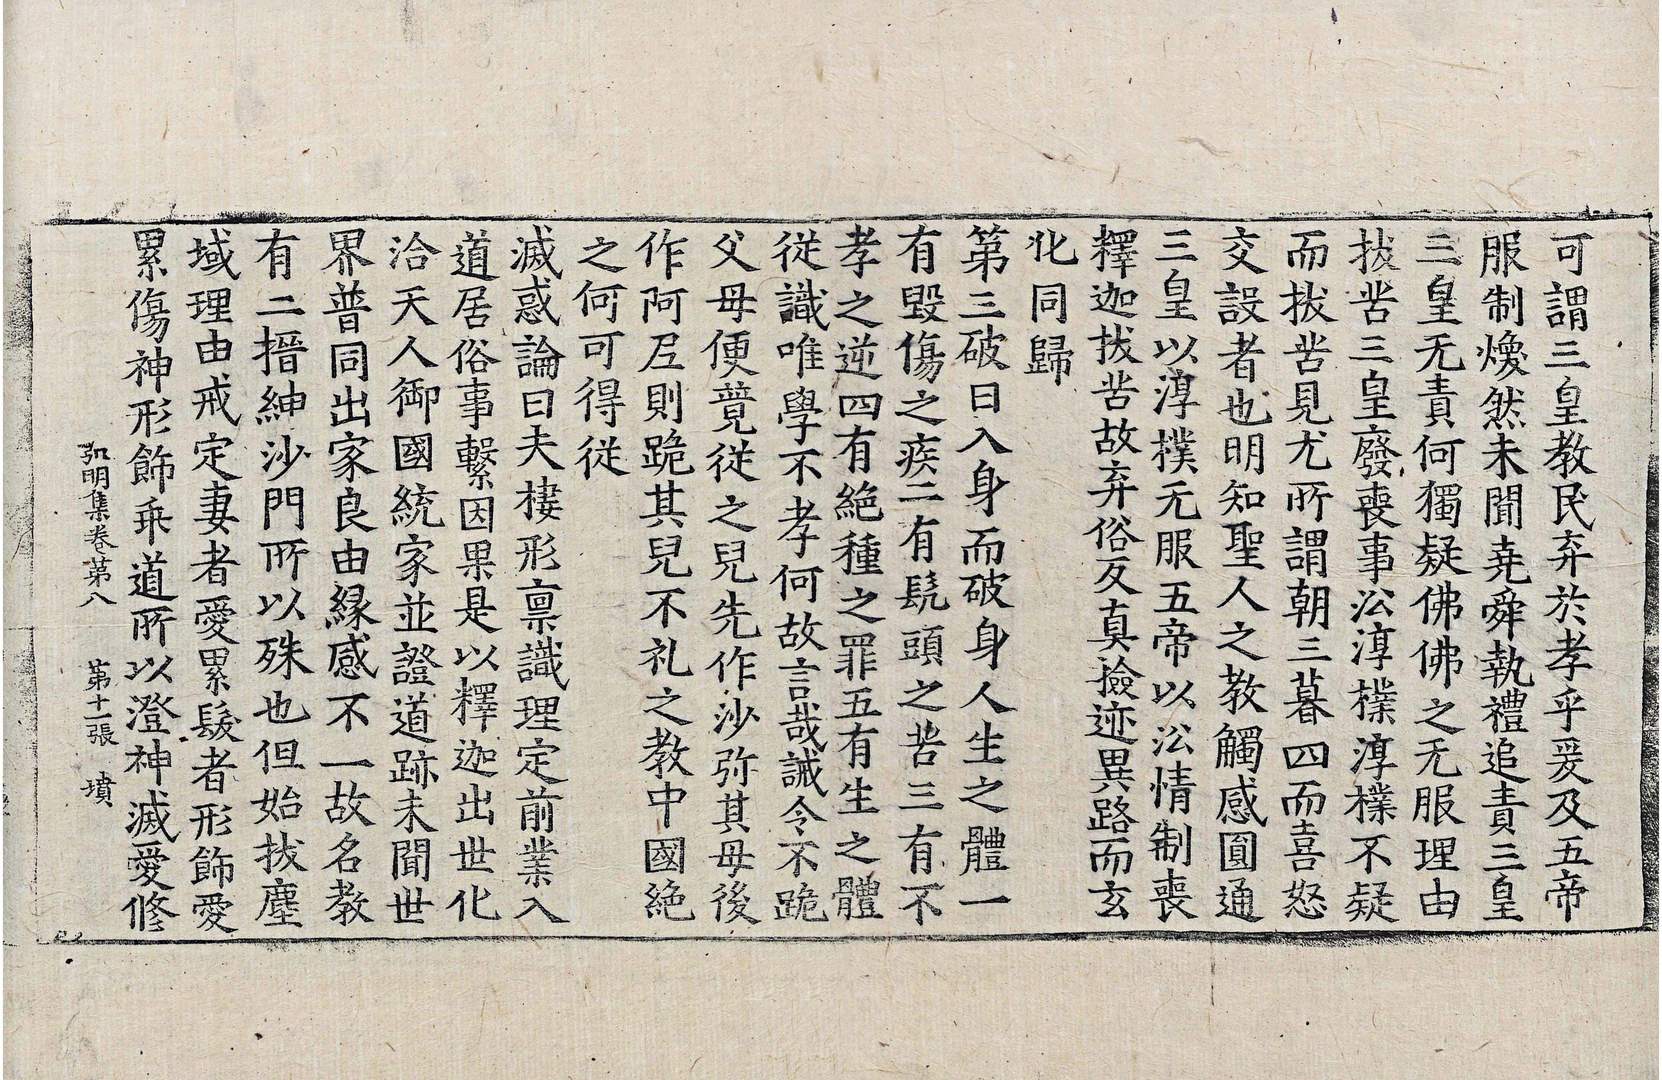 可謂三皇教民弃於孝乎爰及五帝
服制煥然未聞堯舜執禮追責三皇
三皇无責何獨疑佛佛之无服理由
拔苦三皇廢喪事㳂淳樸淳樸不疑
而拔苦見尤所謂朝三暮四而喜怒
交設者也明知聖人之教觸感圓通
三皇以淳樸无服五帝以㳂情制喪
釋迦拔苦故弃俗反真撿迹異路而玄
化同歸
第三破曰入身而破身人生之體一
有毀傷之疾二有髡頭之苦三有不
孝之逆四有絕種之罪五有生之體
從識唯學不孝何故言哉誡令不跪
父母便競從之兒先作沙弥其母後
作阿𡰱則跪其兒不礼之教中國絕
之何可得從
滅惑論曰夫棲形禀識理定前業入
道居俗事繫因果是以釋迦出世化
洽天人御國統家並證道跡未聞世
界普同出家良由緣感不一故名教
有二搢紳沙門所以殊也但始拔塵
域理由戒定妻者愛累髮者形飾愛
累傷神形飾乖道所以澄神滅愛修
弘明集卷第八 第十一張 墳